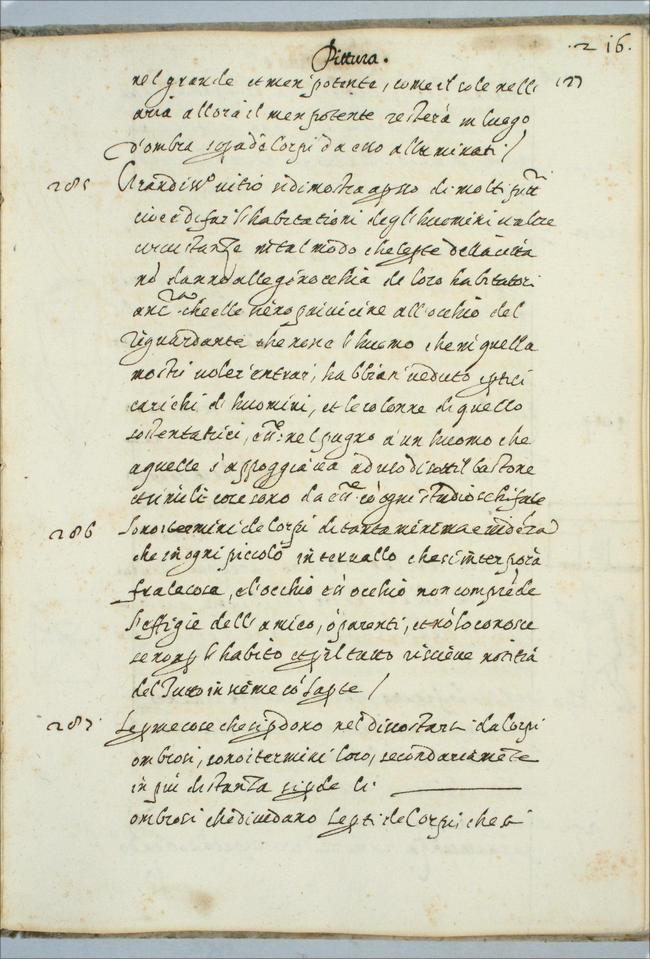 Pittura.
.216.
nel grande et men potente, come il sole nell
aria allora il men potente resterà in luogo
d'ombra sopra de Corpi da esso alluminati /
285 Grandiss.º vitio si dimostra apresso di molti
cioè di far l'habitationi degli huomini
circustanze in tal modo che le
nō danno alle ginocchia de loro habitatori
che elle sieno più vicine all'occhio del
riguardante che non è l'huomo che in quella
mostri voler entrar, habbiān veduto
carichi di huomini, et le colonne di quello
sostentatrici, nel pugno à un huomo che
a quelle s'appoggiava ad uso di sottil bastone
et simili cose sono da cō ogni studio schifate
286 Sono i termini de Corpi di tanta minima
che in ogni piccolo intervallo che s'interpōa
fra la cosa, e l'occhio occhio non comprēde
l'effigie dell'amico, ò parenti, et nō lo conosce
se non p l'habito et p il tutto riceve notitia
del Tutto insieme cō la pte /
287 Le pme cose che si pdono nel discostarsi da Corpi
ombrosi, sono i termini loro, secondariamēte
in più distanza si pde li
ombrosi che dividano le pti de Corpi che si